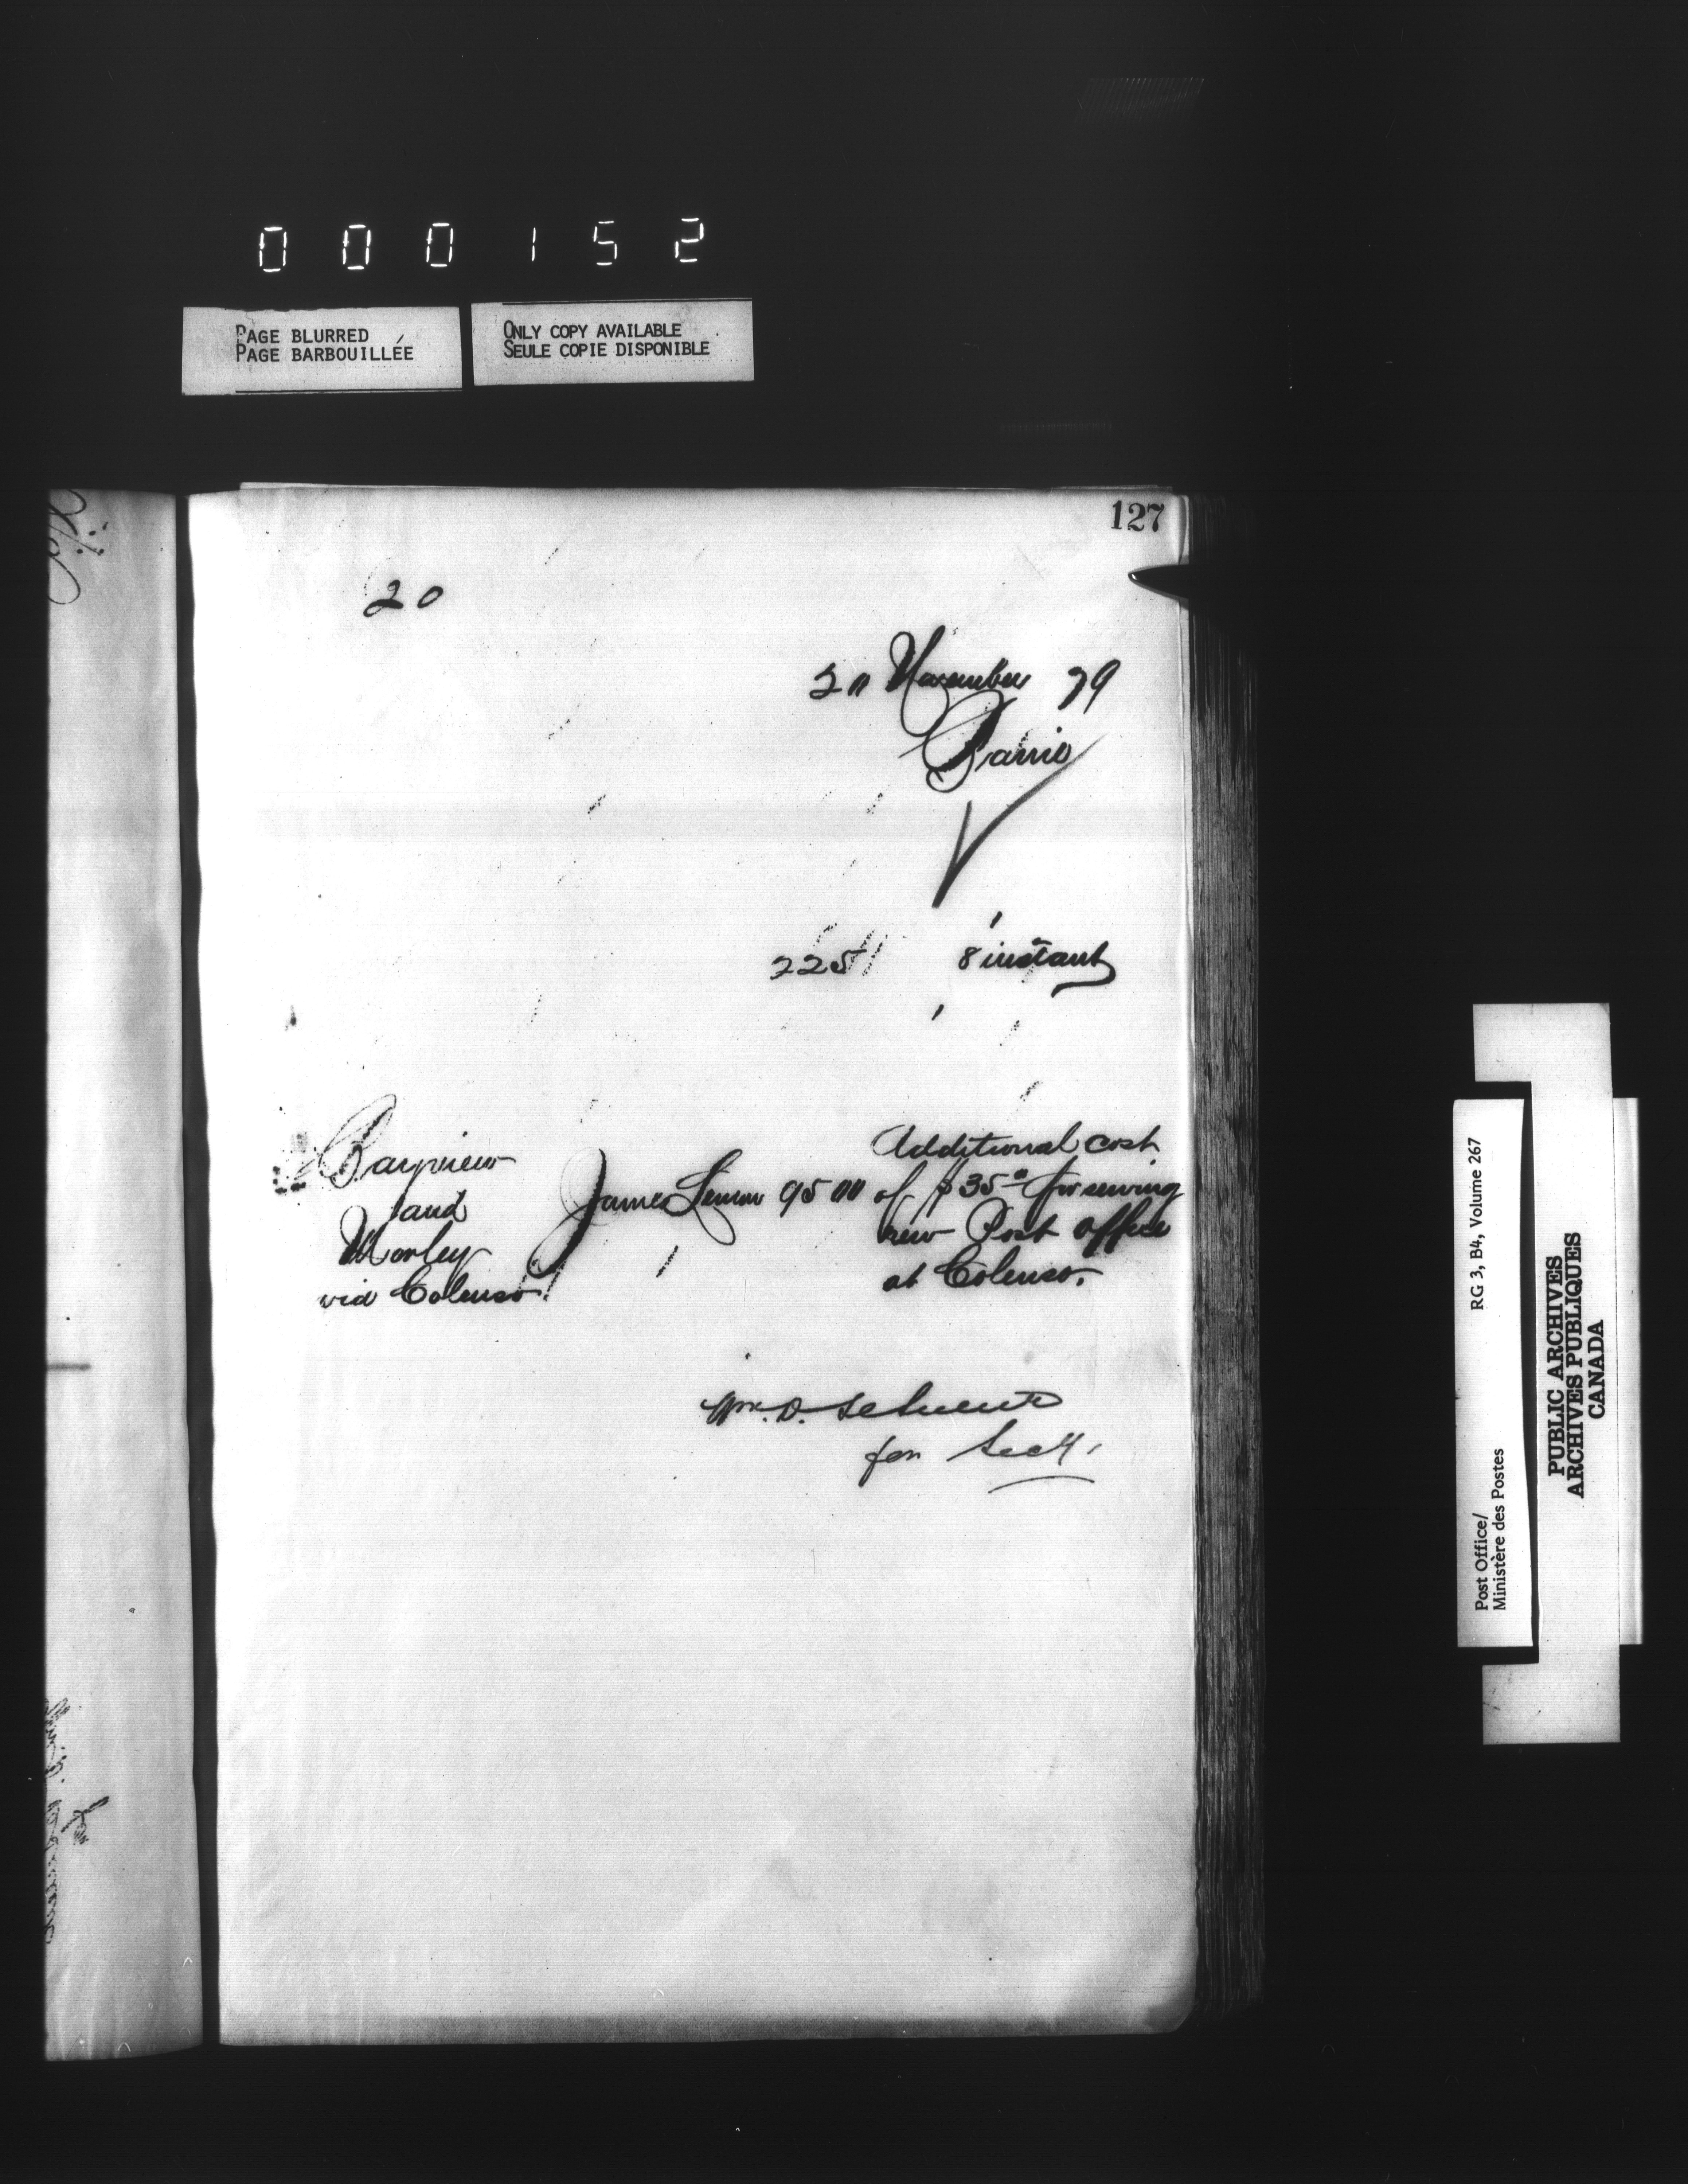 0 0 0 1 5 2
PAGE BLURRED
PAGE BARBOUILLÉE
ONLY COPY AVAILABLE
SEULE COPIE DISPONIBLE
127
20
20 November 79
Barrie
225 8 instant
Bayview
and
Morley
via Colenso
James Lemon 95 00
Additional cost
of $35 00 for serving
new Post Office
at Colenso.
Wm. D.
for Secy.
RG 3, B4, Volume 267
Post Office/
Ministère des Postes
PUBLIC ARCHIVES
ARCHIVES PUBLIQUES
CANADA